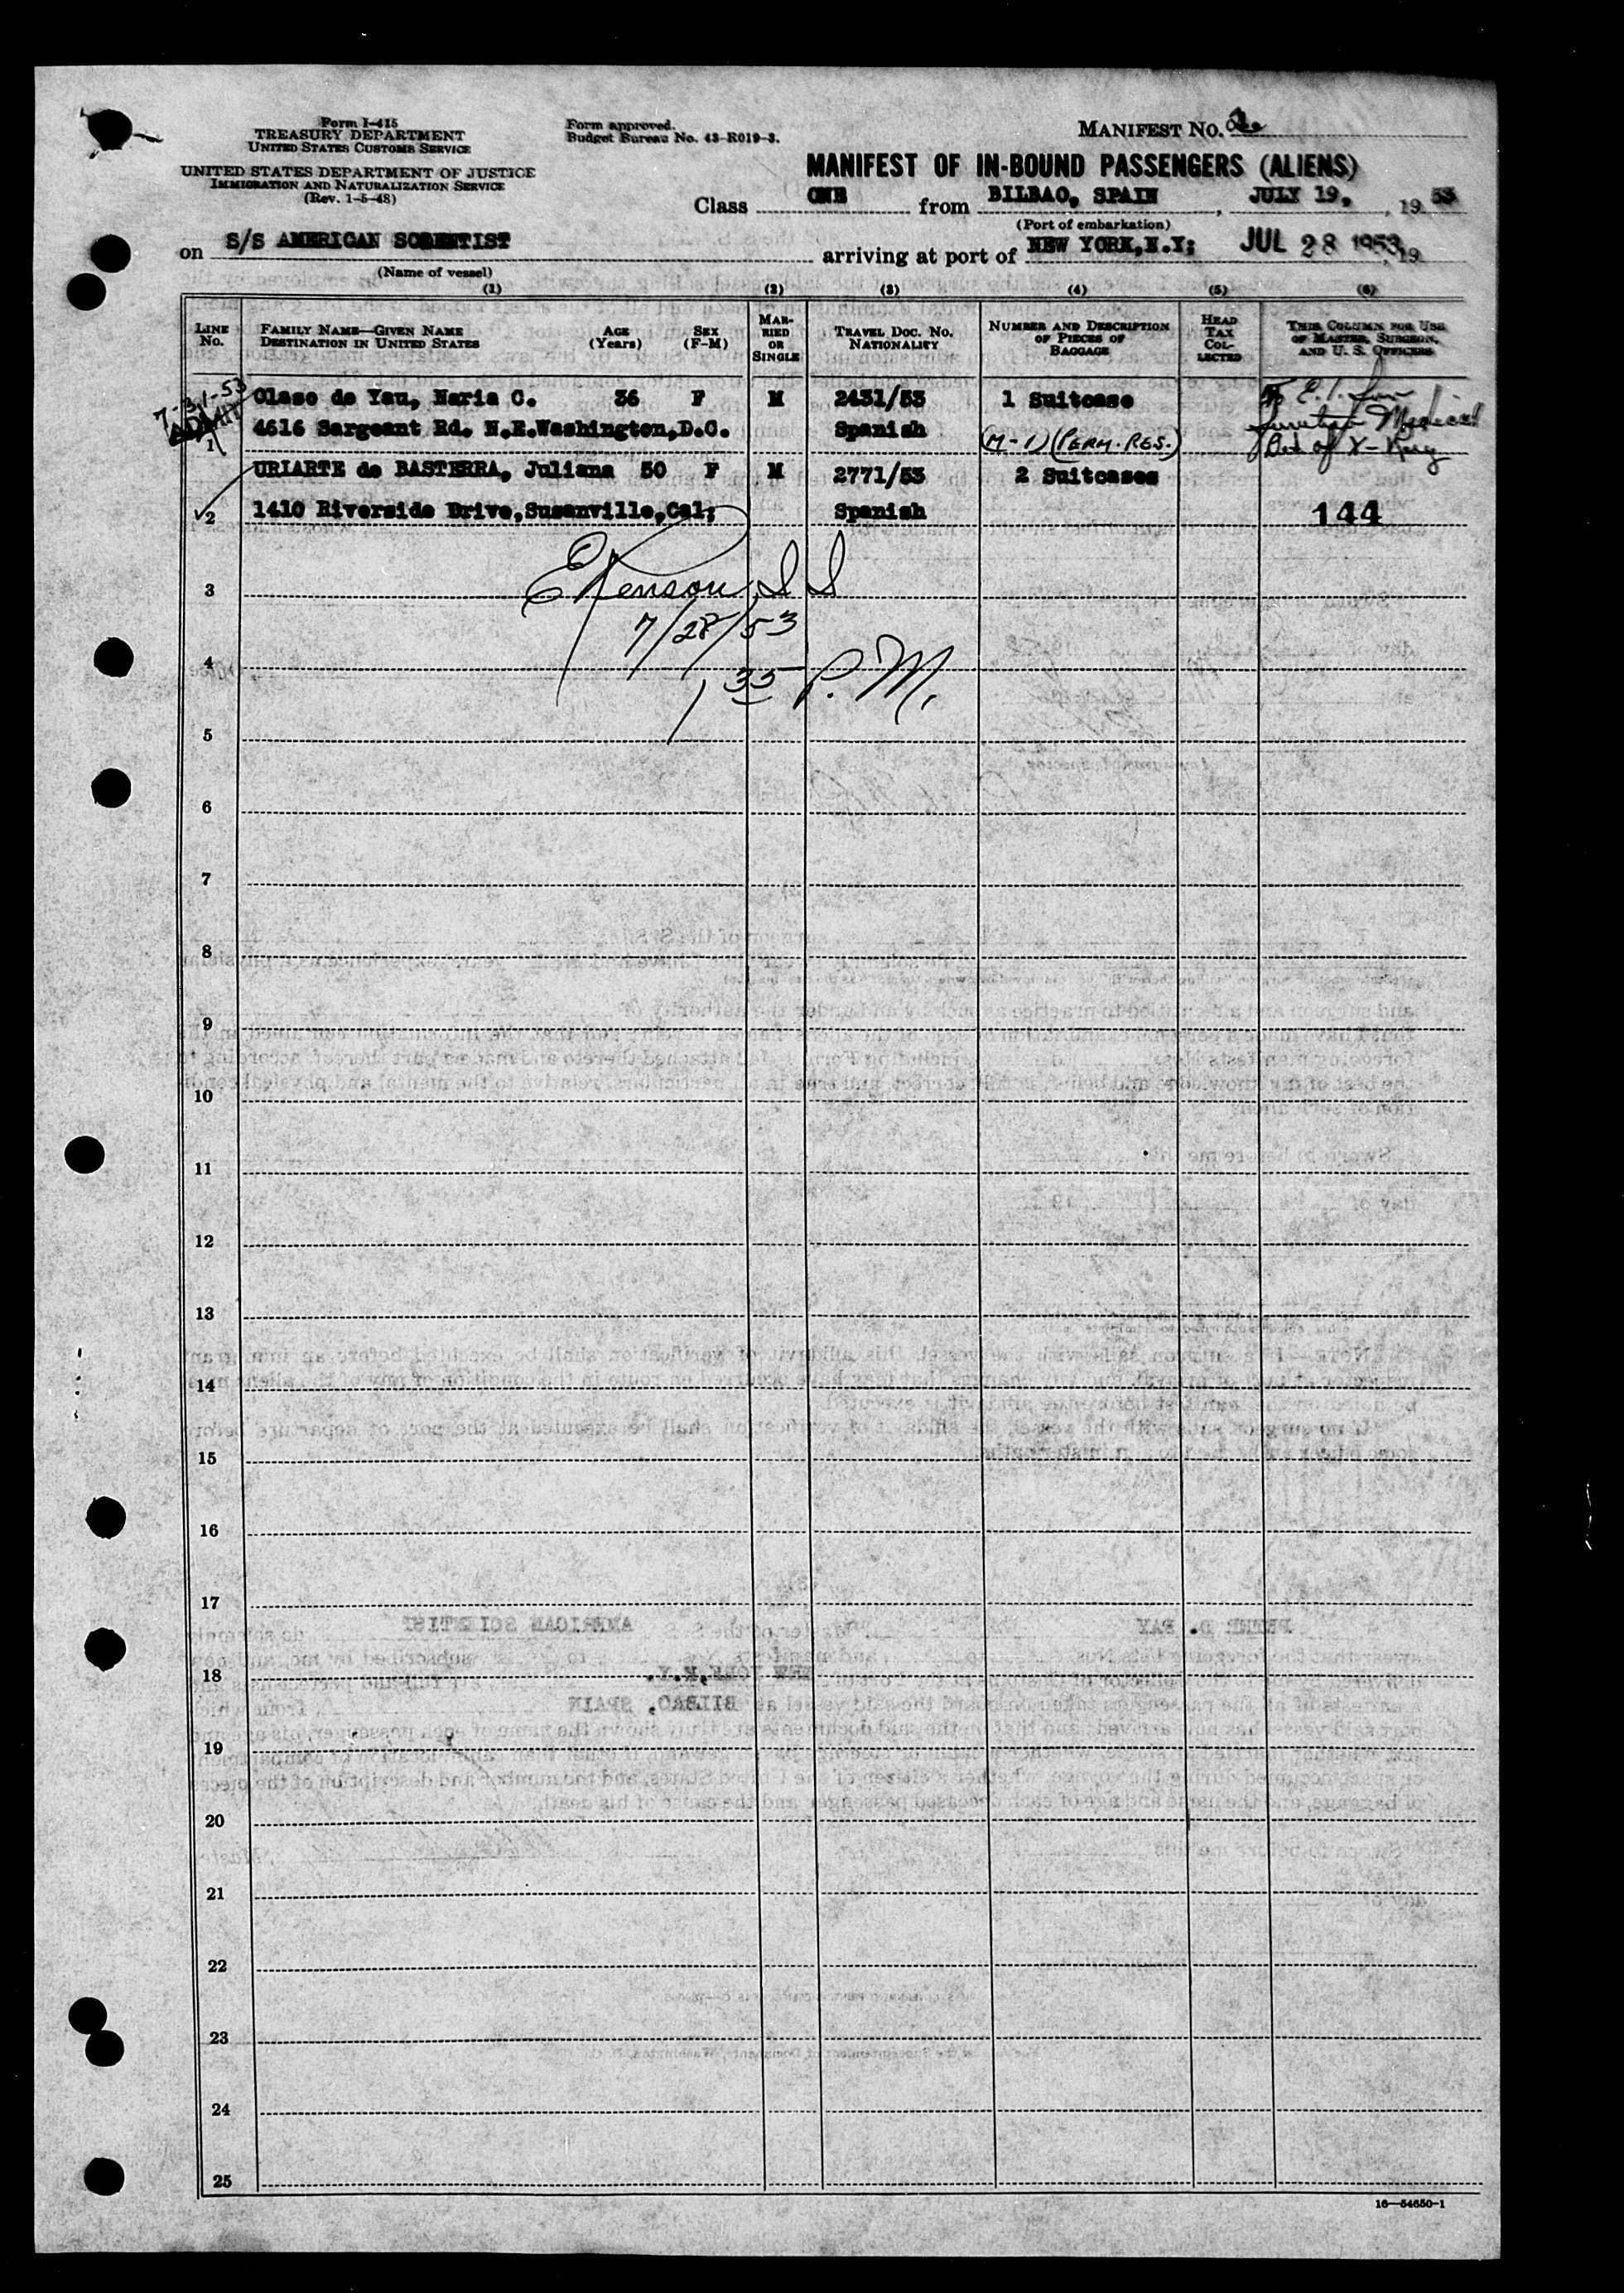 Form I-415
TREASURY DEPARTMENT
UNITED STATES CUSTOMS SERVICE
UNITED STATES DEPARTMENT OF JUSTICE
IMMIGRATION AND NATURALIZATION SERVICE
(Rev. 1-5-48)
Form approved.
Budget Bureau No. 43-R019-3.
MANIFEST NO.
MANIFEST OF IN-BOUND PASSENGERS (ALIENS)
Class ONE from BILBAO, SPAIN, JULY 19, , 19 53
(Port of embarkation)
on S/S AMERICAN SCIENTIST arriving at port of NEW YORK,N.Y; JUL 28 1953, 19
(Name of vessel)
(1) (2) (3) (4) (5) (6)
LINE No. FAMILY NAME—GIVEN NAME DESTINATION IN UNITED STATES AGE (Years) SEX (F-M) MARRIED OR SINGLE TRAVEL DOC. NO. NATIONALITY NUMBER AND DESCRIPTION OF PIECES OF BAGGAGE HEAD TAX COLLECTED THIS COLUMN FOR USE OF MASTER, SURGEON, AND U. S. OFFICERS
7-31-53
Olaso de Yau, Maria C. 36 F M 2431/53 1 Suitcase
1 4616 Sargeant Rd. N.E.Washington,D.C. Spanish (M-1) (PERM. RES.) Medical X-Ray
URIARTE de BASTERRA, Juliana 50 F M 2771/53 2 Suitcases
2 1410 Riverside Drive,Susanville,Cal; Spanish 144
3
7/28/53
4
1 35 P.M.
5
6
7
8
9
10
11
12
13
14
15
16
17
18
19
20
21
22
23
24
25
16—54650-1